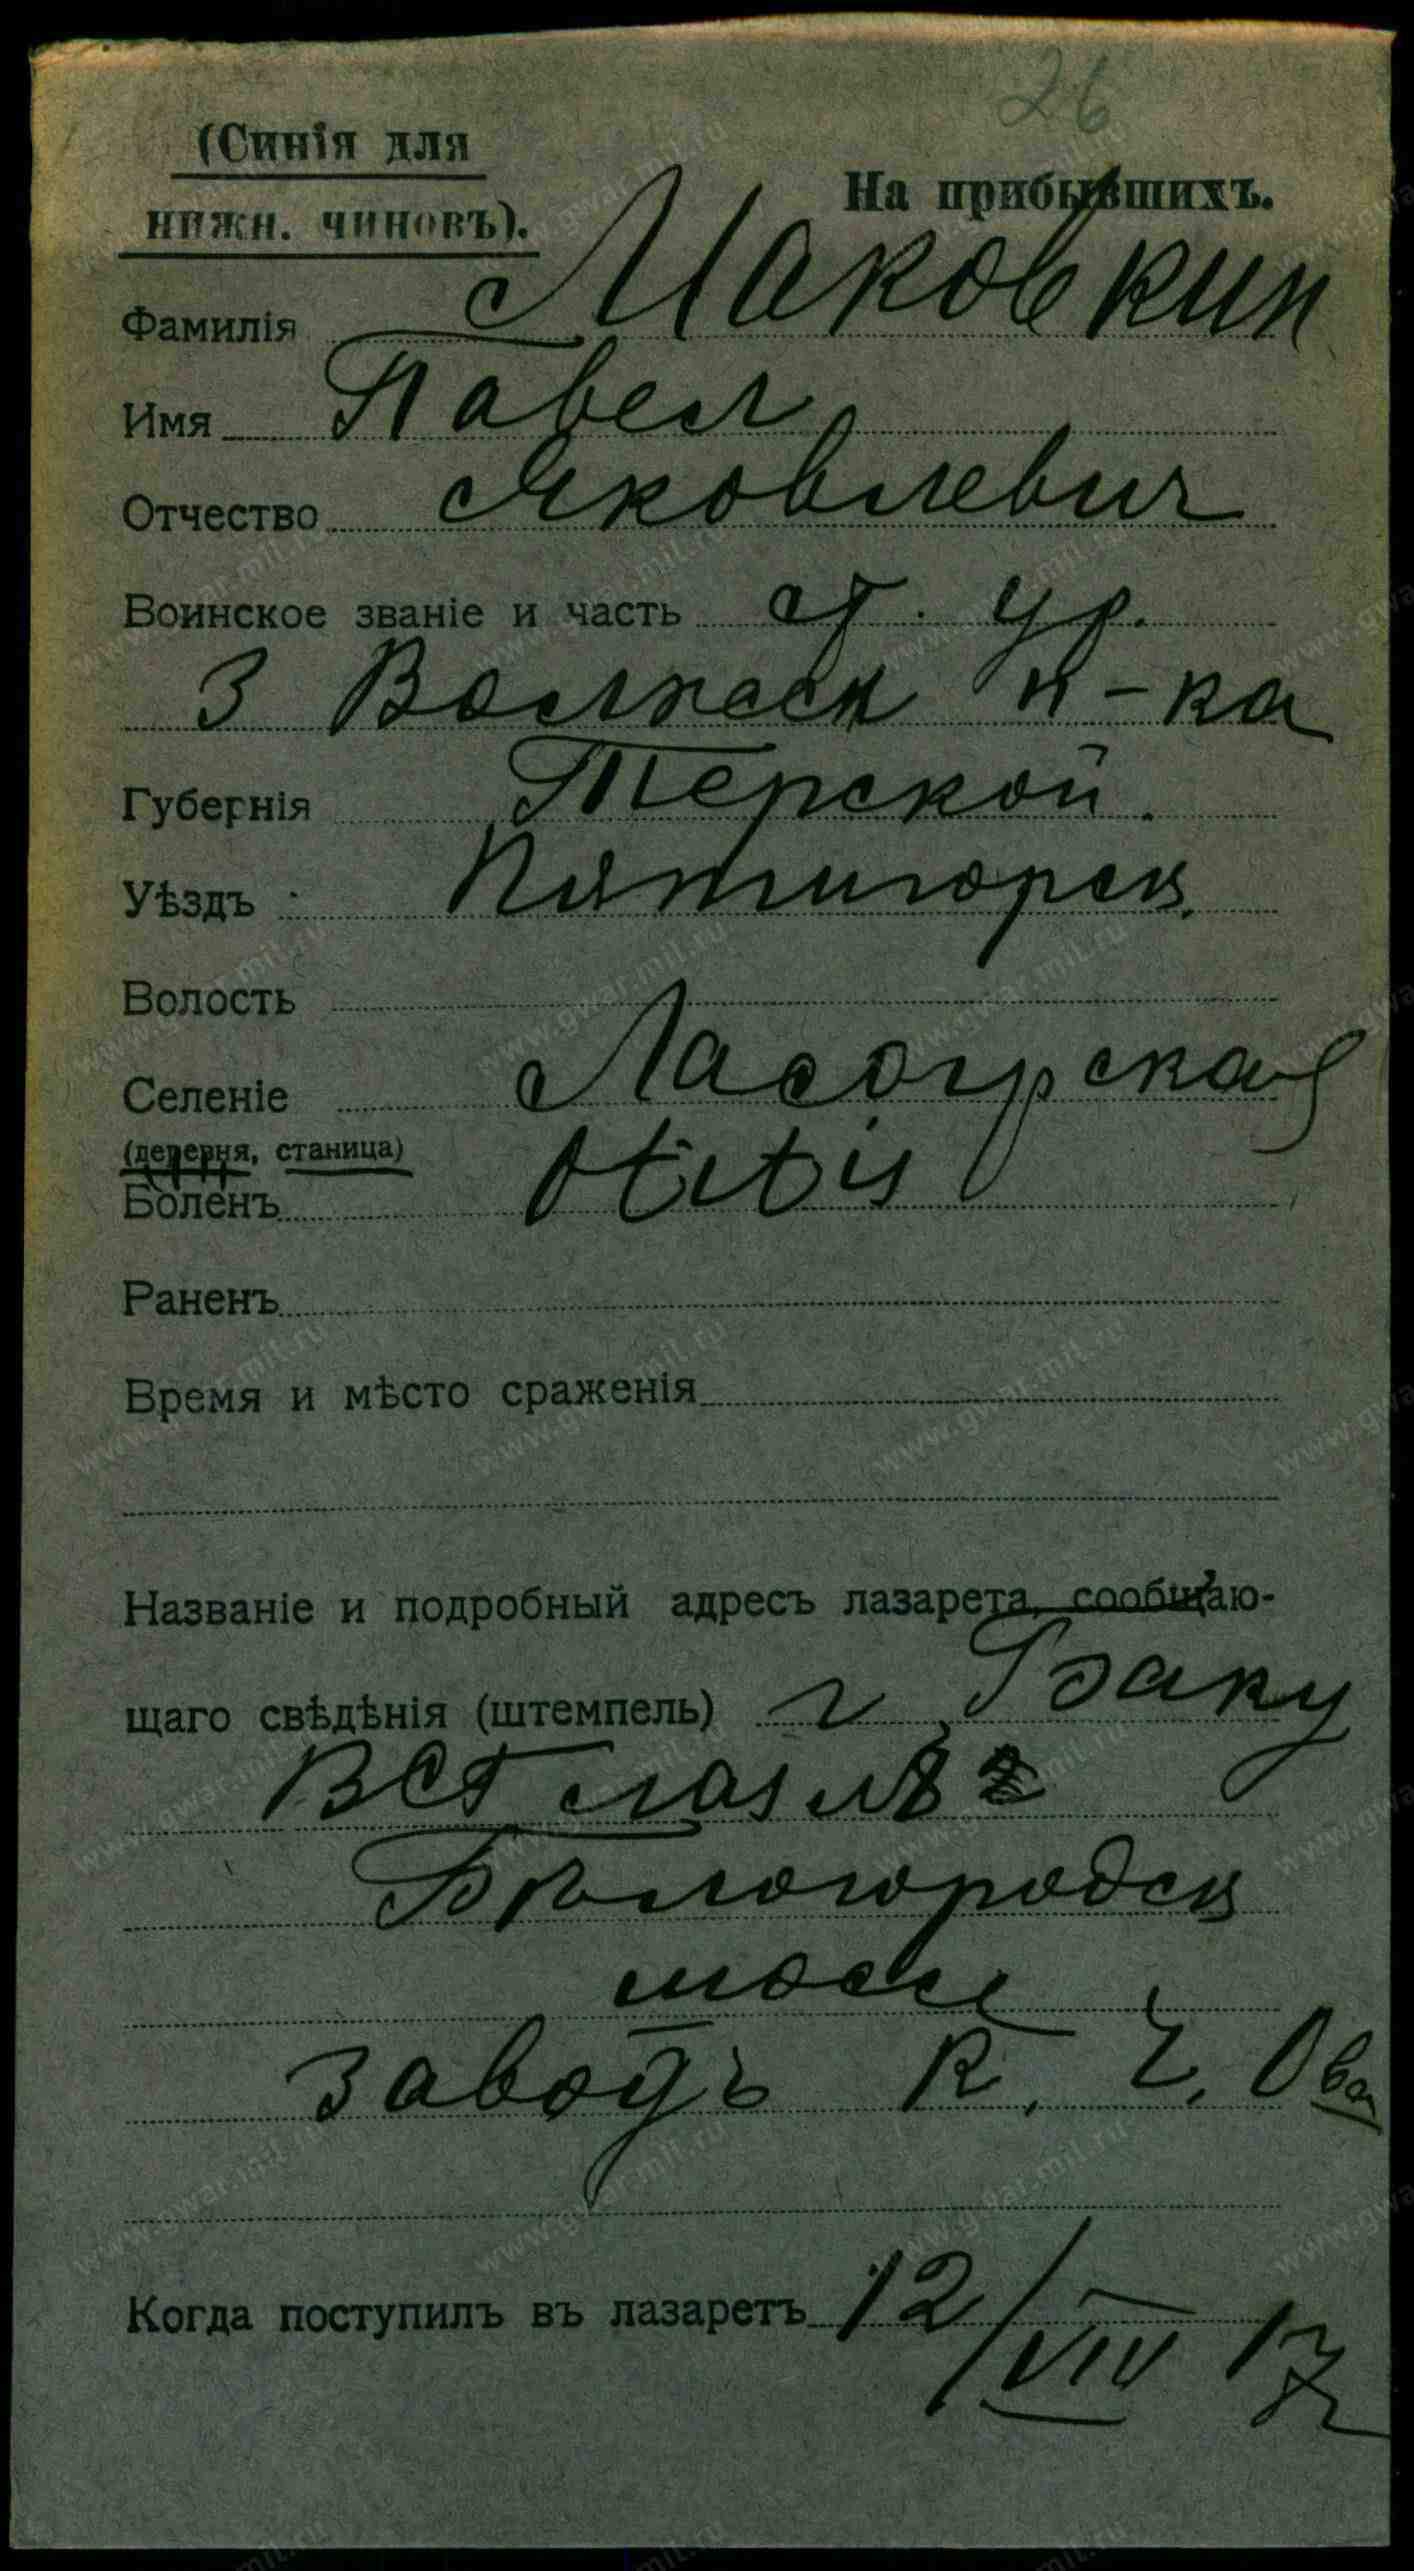 26
(Синія для
нижн. чиновъ).
На прибывшихъ.
Фамилія Маковкин
Имя Павел
Отчество Яковлевич
Воинское званіе и часть ст. ур.
3 Волжск п-ка
Губернія Терской
Уѣздъ Пятигорск.
Волость
Селеніе Ласогрская
(деревня, станица)
Боленъ Otitis
Раненъ
Время и мѣсто сраженія
Названіе и подробный адресъ лазарета, сообщаю-
щаго свѣдѣнія (штемпель) г Баку
ВСГ лаз №
Бѣлогородск
шоссе
заводъ К. Ч. Ова
Когда поступилъ въ лазаретъ 12/VIII 17